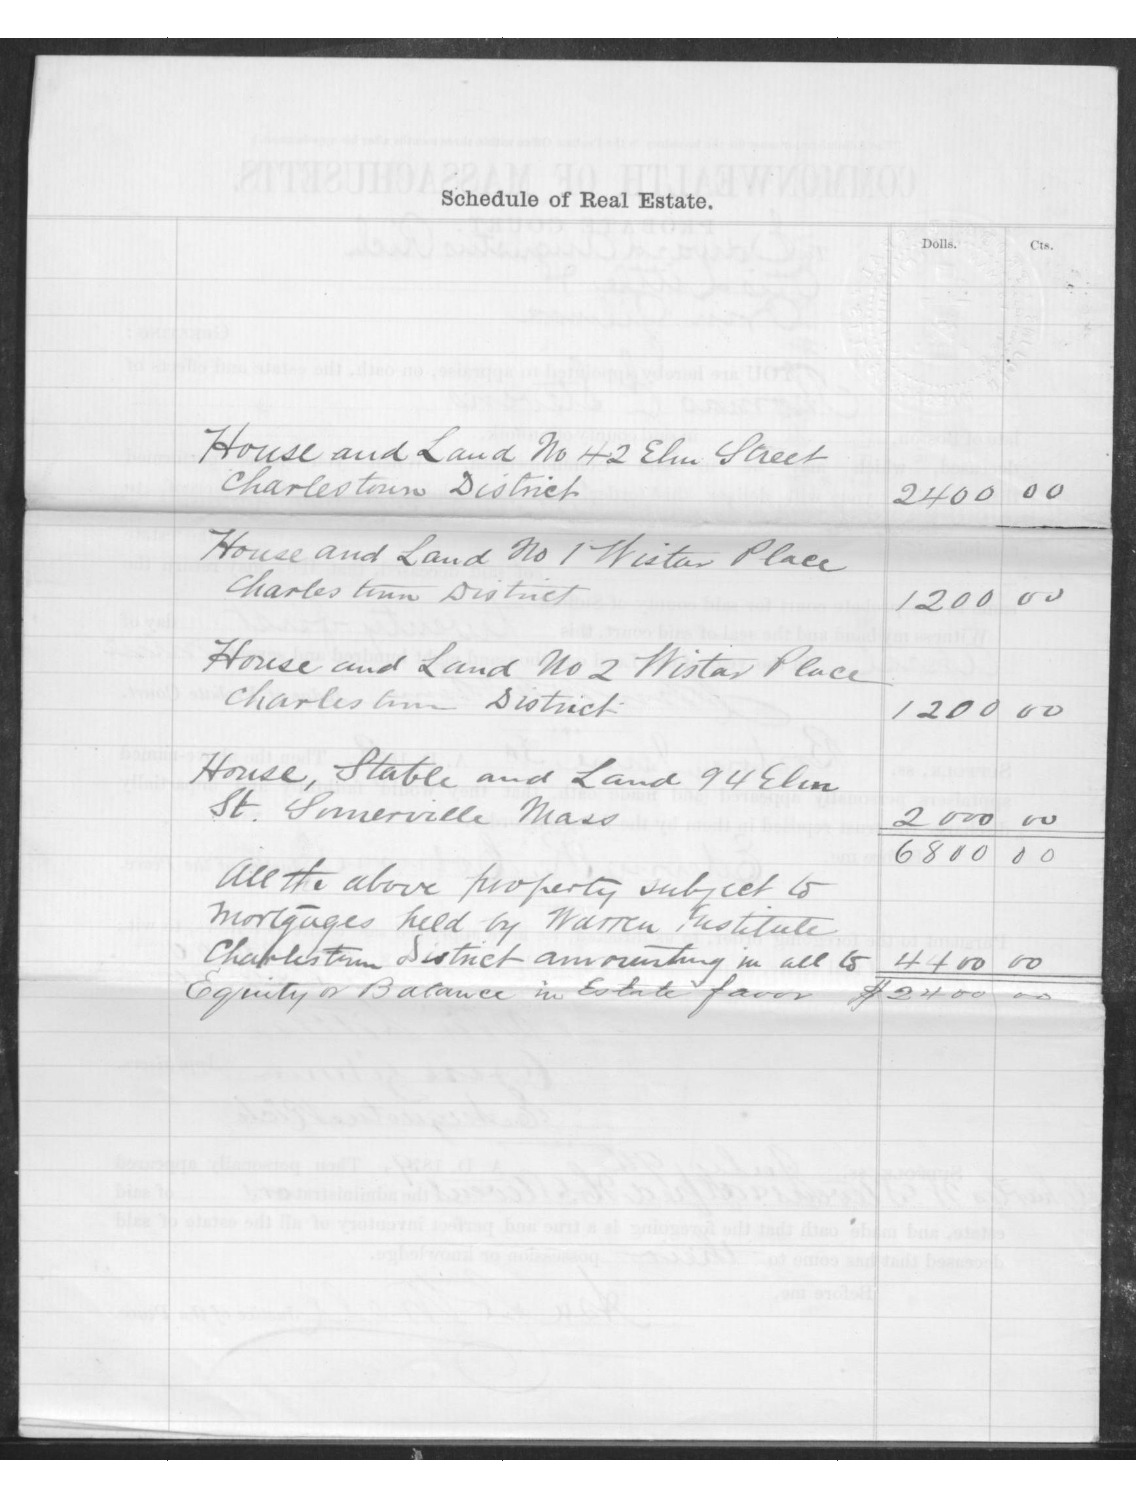 Schedule of Real Estate.
Dolls. Cts.
House and Land No 42 Elm Street
Charlestown District 2400 00
House and Land No 1 Wistar Place
Charlestown District 1200 00
House and Land No 2 Wistar Place
Charlestown District 1200 00
House, Stable and Land 94 Elm
St. Somerville Mass 2000 00
6800 00
All the above property subject to
Mortgages held by Warren Institute
Charlestown District amounting in all to 4400 00
Equity or Balance in Estate favor $2400 00